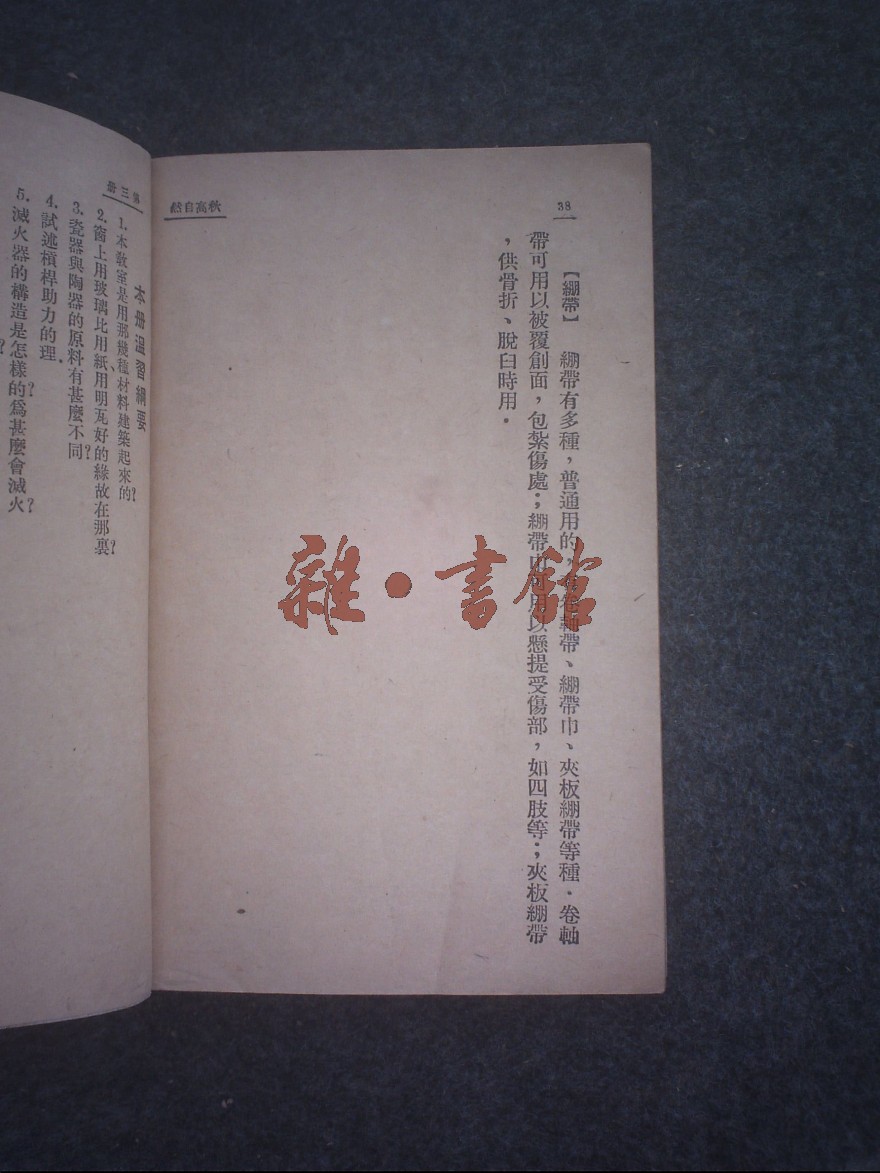 38
秋高自然
【綳帶】　綳帶有多種，普通用的，有卷軸帶、綳帶巾、夾板綳帶等種．卷軸
帶可用以被覆創面，包紮傷處；綳帶巾可用以懸提受傷部，如四肢等；夾板綳帶
，供骨折、脫臼時用．
第三册
本册溫習綱要
1. 本教室是用那幾種材料建築起來的？
2. 窗上用玻璃比用紙、用明瓦好的緣故在那裏？
3. 瓷器與陶器的原料有甚麼不同？
4. 試述槓桿助力的理．
5. 滅火器的構造是怎樣的？爲甚麼會滅火？
雜・書館